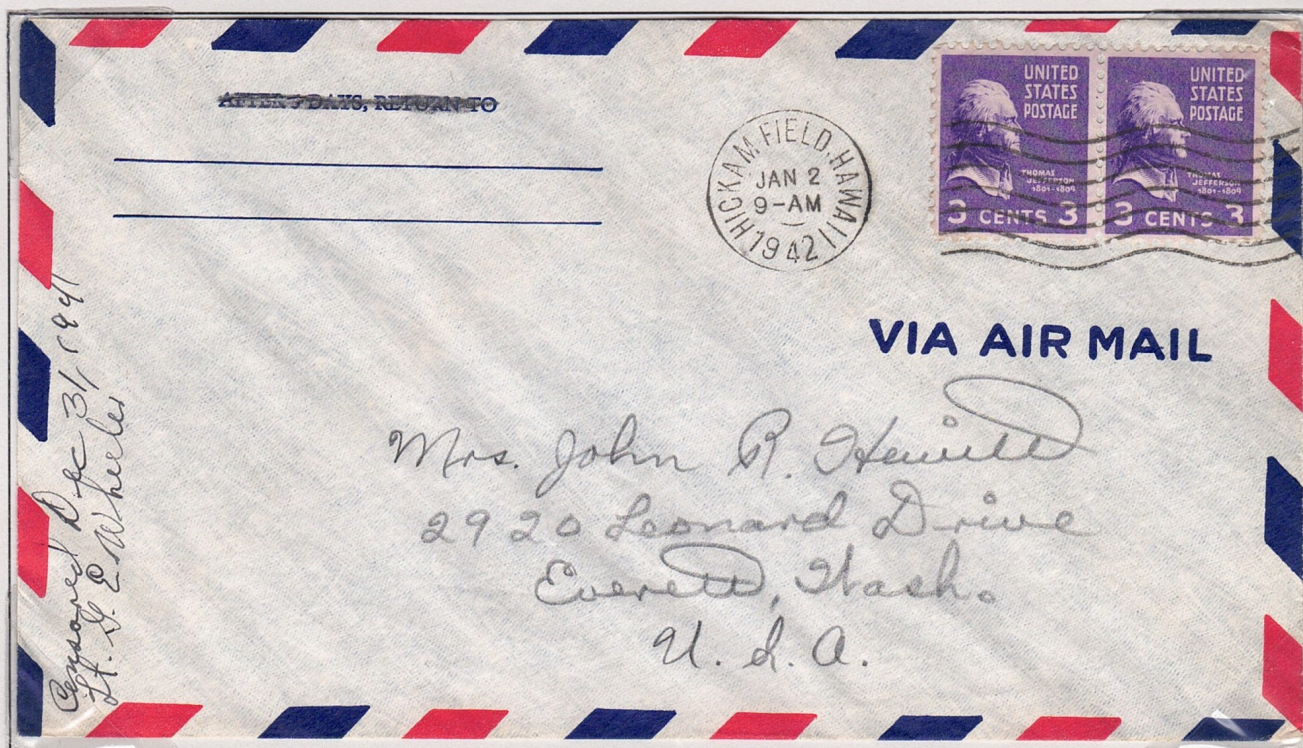 AFTER 5 DAYS, RETURN TO
HICKAM FIELD, HAWAII
JAN 2
9-AM
1942
UNITED
STATES
POSTAGE
THOMAS
JEFFERSON
1801-1809
3 CENTS 3
UNITED
STATES
POSTAGE
THOMAS
JEFFERSON
1801-1809
3 CENTS 3
VIA AIR MAIL
Mrs. John R. Hewitt
2920 Leonard Drive
Everett, Wash.
U. S. A.
Censored Dec 31, 1941
Lt. G. E Wheeler